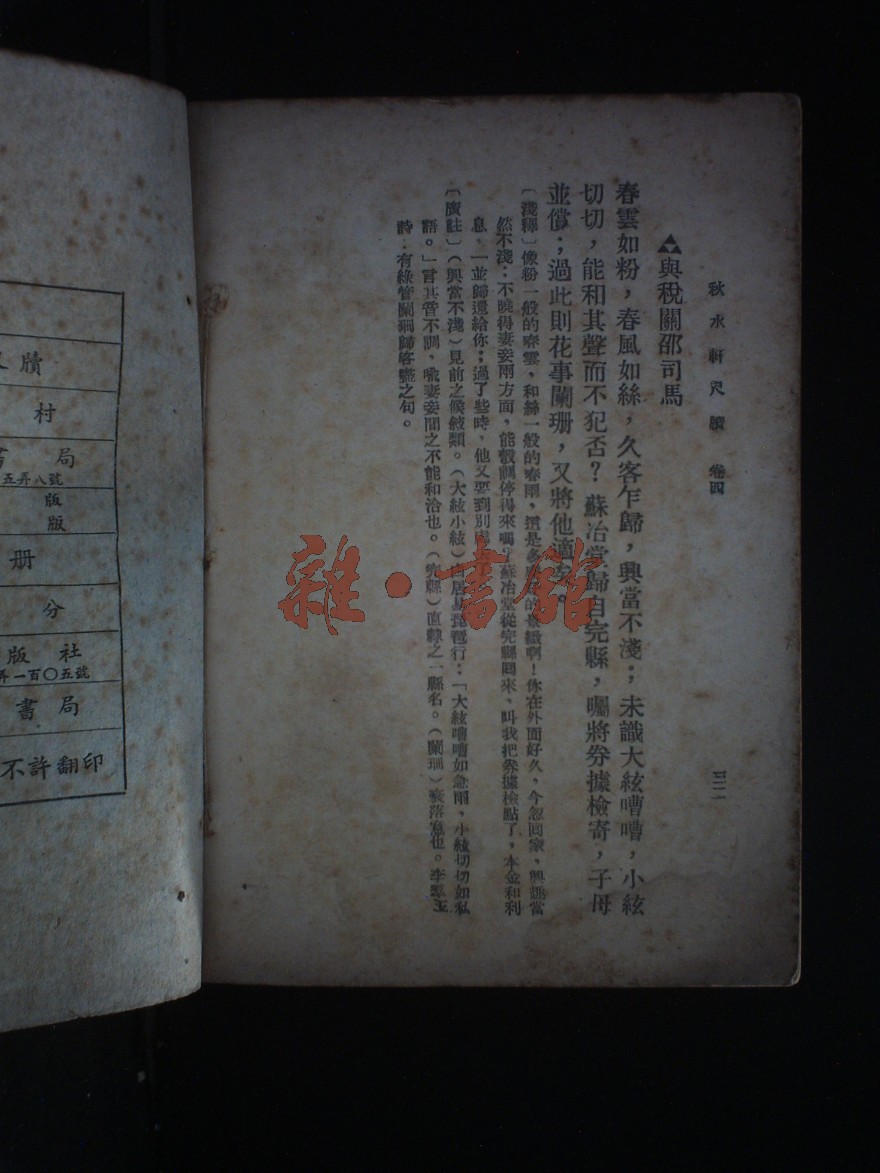 秋水軒尺牘 卷四
三二
與稅關邵司馬
春雲如粉，春風如絲，久客乍歸，興當不淺；未識大絃嘈嘈，小絃
切切，能和其聲而不犯否？蘇冶堂歸自完縣，囑將券據檢寄，子母
並償；過此則花事闌珊，又將他適矣。
〔淺釋〕像粉一般的春雲，和絲一般的春雨，這是多 的景緻啊！你在外面好久，今忽回家，興趣當
然不淺；不曉得妻妾兩方面，能彀調停得來嗎？蘇冶堂從完縣回來，叫我把券據檢點了，本金和利
息，一並歸還給你；過了些時，他又要到別處去了。
〔廣註〕（興當不淺）見前之候敍類。（大絃小絃）白居易琵琶行：「大絃嘈嘈如急雨，小絃切切如私
語。」言其管不調，喩妻妾間之不能和洽也。（完縣）直隸之一縣名。（闌珊）衰落意也。李羣玉
詩：有綠管闌珊歸客盡之句。
雜·書館
牘
村
書 局
五弄八號
版
版
册
分
版 社
弄一百〇五號
書 局
不許翻印